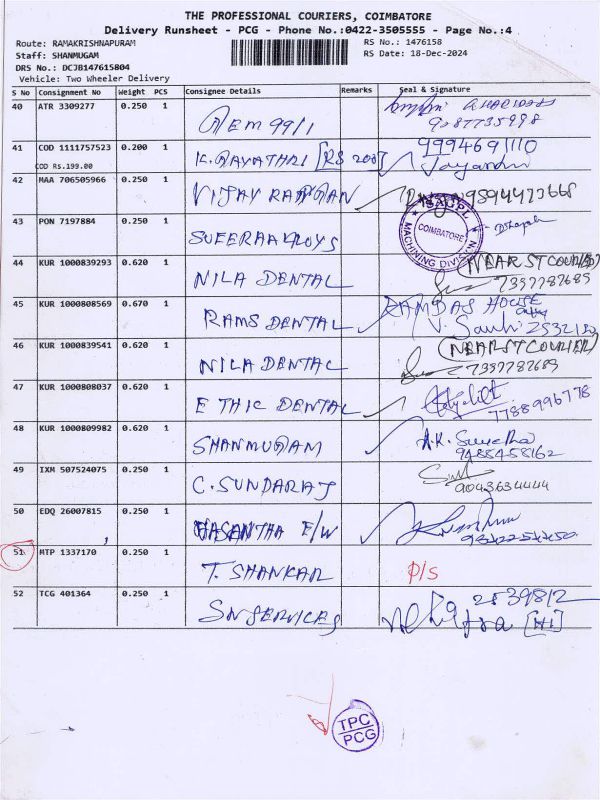 THE PROFESSIONAL COURIERS, COIMBATORE
Delivery Runsheet - PCG - Phone No.:0422-3505555 - Page No.:4
Route: RAMAKRISHNAPURAM
RS No.: 1476158
Staff: SHANMUGAM
RS Date: 18-Dec-2024
DRS No.: DCJB147615804
Vehicle: Two Wheeler Delivery
S No Consignment No Weight PCS Consignee Details Remarks Seal & Signature
40 ATR 3309277 0.250 1
41 COD 1111757523 0.200 1 K. GAYATHRI [RS 200] 9994691110
COD RS.199.00
42 MAA 706505966 0.250 1 VIJAY
43 PON 7197884 0.250 1
SACPL COIMBATORE MACHINING DIVISION
44 KUR 1000839293 0.620 1 NILA DENTAL NEAR ST COURIER
7397787689
45 KUR 1000808569 0.670 1 RAMS DENTAL RAMDAS HOUSE
46 KUR 1000839541 0.620 1 NILA DENTAL NEAR ST COURIER
7397782689
47 KUR 1000808037 0.620 1 ETHIC DENTAL
7788996778
48 KUR 1000809982 0.620 1 SHANMUGAM
9488458162
49 IXM 507524075 0.250 1 C. SUNDARAJ
9043634444
50 EDQ 26007815 0.250 1 E/W
51 MTP 1337170 0.250 1 T. SHANKAR P/S
52 TCG 401364 0.250 1 SN SERVICES 2539812
[HI]
TPC
PCG